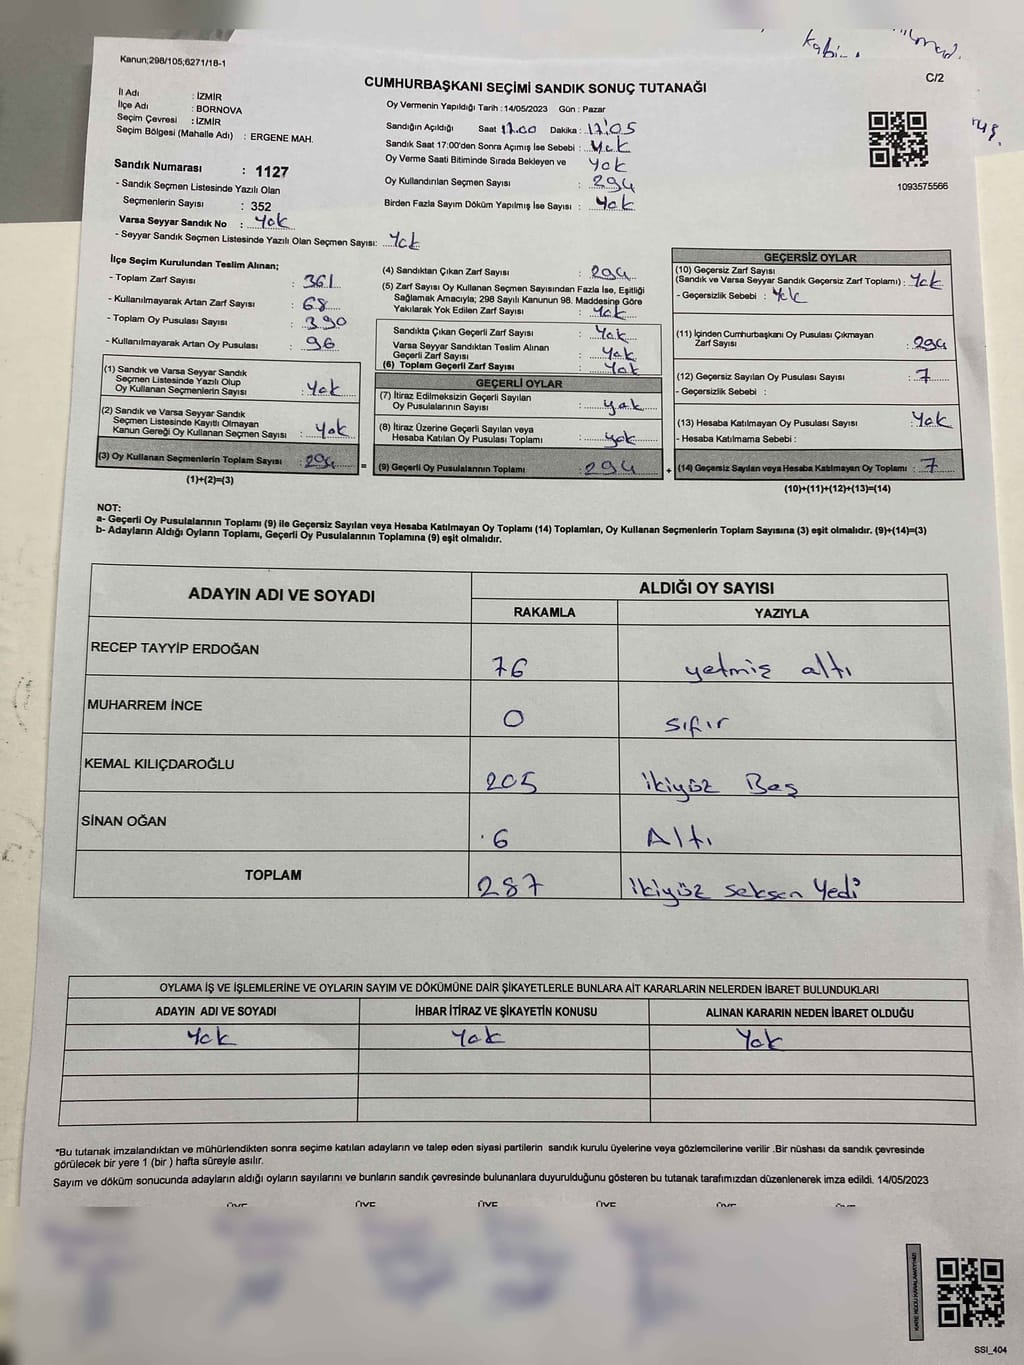 Kabi
Kanun;298/105;6271/18-1
C/2
CUMHURBAŞKANI SEÇİMİ SANDIK SONUÇ TUTANAĞI
İl Adı : İZMİR
İlçe Adı : BORNOVA
Seçim Çevresi : İZMİR
Seçim Bölgesi (Mahalle Adı) : ERGENE MAH.
Sandık Numarası : 1127
- Sandık Seçmen Listesinde Yazılı Olan
Seçmenlerin Sayısı : 352
Varsa Seyyar Sandık No : Yok
- Seyyar Sandık Seçmen Listesinde Yazılı Olan Seçmen Sayısı: Yok
Oy Vermenin Yapıldığı Tarih : 14/05/2023 Gün : Pazar
Sandığın Açıldığı Saat 17.00 Dakika : 17:05
Sandık Saat 17:00'den Sonra Açımış İse Sebebi : Yok
Oy Verme Saati Bitiminde Sırada Bekleyen ve Yok
Oy Kullandırılan Seçmen Sayısı : 294
Birden Fazla Sayım Döküm Yapılmış İse Sayısı : Yok
1093575566
İlçe Seçim Kurulundan Teslim Alınan;
- Toplam Zarf Sayısı : 361
- Kullanılmayarak Artan Zarf Sayısı : 68
- Toplam Oy Pusulası Sayısı : 390
- Kullanılmayarak Artan Oy Pusulası : 96
(1) Sandık ve Varsa Seyyar Sandık
Seçmen Listesinde Yazılı Olup
Oy Kullanan Seçmenlerin Sayısı : Yok
(2) Sandık ve Varsa Seyyar Sandık
Seçmen Listesinde Kayıtlı Olmayan
Kanun Gereği Oy Kullanan Seçmen Sayısı : Yok
(3) Oy Kullanan Seçmenlerin Toplam Sayısı : 294
(1)+(2)=(3)
(4) Sandıktan Çıkan Zarf Sayısı : 294
(5) Zarf Sayısı Oy Kullanan Seçmen Sayısından Fazla İse, Eşitliği
Sağlamak Amacıyla; 298 Sayılı Kanunun 98. Maddesine Göre
Yakılarak Yok Edilen Zarf Sayısı : Yok
Sandıkta Çıkan Geçerli Zarf Sayısı : Yok
Varsa Seyyar Sandıktan Teslim Alınan
Geçerli Zarf Sayısı : Yok
(6) Toplam Geçerli Zarf Sayısı : Yok
GEÇERLİ OYLAR
(7) İtiraz Edilmeksizin Geçerli Sayılan
Oy Pusulalarının Sayısı : yok
(8) İtiraz Üzerine Geçerli Sayılan veya
Hesaba Katılan Oy Pusulası Toplamı : yok
= (9) Geçerli Oy Pusulalarının Toplamı : 294 +
GEÇERSİZ OYLAR
(10) Geçersiz Zarf Sayısı
(Sandık ve Varsa Seyyar Sandık Geçersiz Zarf Toplamı) : Yok
- Geçersizlik Sebebi : Yok
(11) İçinden Cumhurbaşkanı Oy Pusulası Çıkmayan
Zarf Sayısı : 294
(12) Geçersiz Sayılan Oy Pusulası Sayısı : 7
- Geçersizlik Sebebi :
(13) Hesaba Katılmayan Oy Pusulası Sayısı : Yok
- Hesaba Katılmama Sebebi :
(14) Geçersiz Sayılan veya Hesaba Katılmayan Oy Toplamı : 7
(10)+(11)+(12)+(13)=(14)
NOT:
a- Geçerli Oy Pusulalarının Toplamı (9) ile Geçersiz Sayılan veya Hesaba Katılmayan Oy Toplamı (14) Toplamları, Oy Kullanan Seçmenlerin Toplam Sayısına (3) eşit olmalıdır. (9)+(14)=(3)
b- Adayların Aldığı Oyların Toplamı, Geçerli Oy Pusulalarının Toplamına (9) eşit olmalıdır.
ADAYIN ADI VE SOYADI ALDIĞI OY SAYISI
RAKAMLA YAZIYLA
RECEP TAYYİP ERDOĞAN 76 yetmiş altı
MUHARREM İNCE 0 sıfır
KEMAL KILIÇDAROĞLU 205 ikiyüz Beş
SİNAN OĞAN 6 Altı
TOPLAM 287 ikiyüz seksen Yedi
OYLAMA İŞ VE İŞLEMLERİNE VE OYLARIN SAYIM VE DÖKÜMÜNE DAİR ŞİKAYETLERLE BUNLARA AİT KARARLARIN NELERDEN İBARET BULUNDUKLARI
ADAYIN ADI VE SOYADI İHBAR İTİRAZ VE ŞİKAYETİN KONUSU ALINAN KARARIN NEDEN İBARET OLDUĞU
Yok Yok Yok
*Bu tutanak imzalandıktan ve mühürlendikten sonra seçime katılan adayların ve talep eden siyasi partilerin sandık kurulu üyelerine veya gözlemcilerine verilir .Bir nüshası da sandık çevresinde
görülecek bir yere 1 (bir ) hafta süreyle asılır.
Sayım ve döküm sonucunda adayların aldığı oyların sayılarını ve bunların sandık çevresinde bulunanlara duyurulduğunu gösteren bu tutanak tarafımızdan düzenlenerek imza edildi. 14/05/2023
ÜYE ÜYE ÜYE ÜYE ÜYE
SSI_404